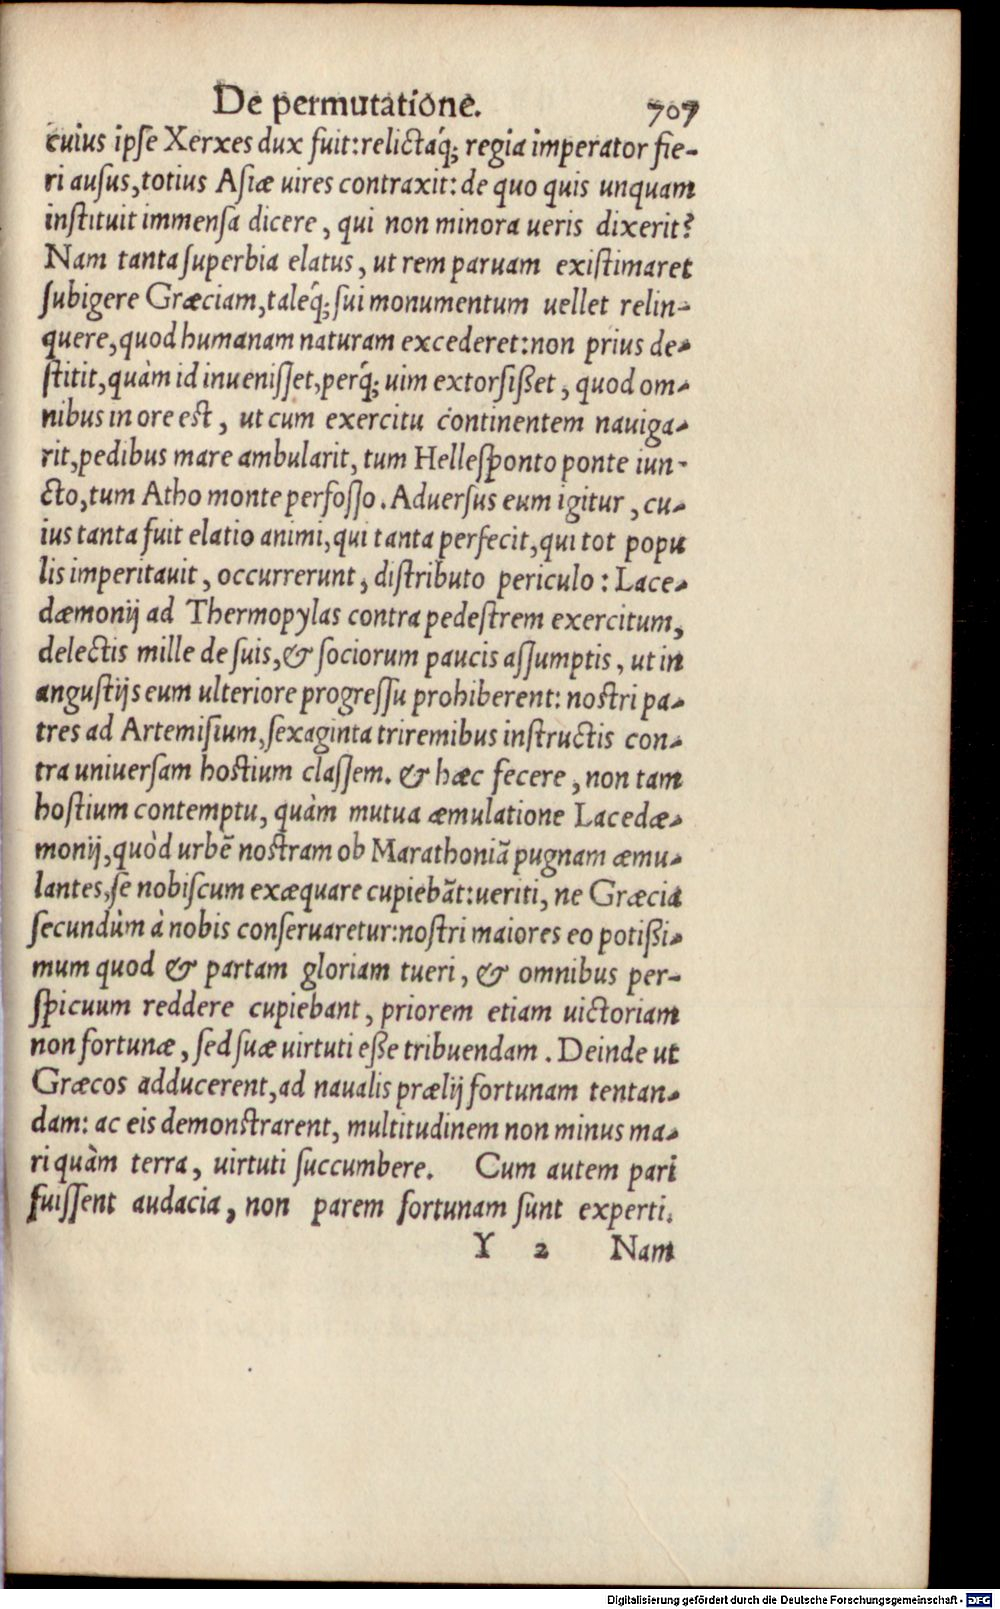 De permutatione. 707
cuius ipſe Xerxes dux fuit: relictáq́; regia imperator fie-
ri auſus, totius Aſiæ uires contraxit: de quo quis unquam
inſtituit immenſa dicere, qui non minora ueris dixerit?
Nam tanta ſuperbia elatus, ut rem paruam exiſtimaret
ſubigere Græciam, taleq́; ſui monumentum uellet relin-
quere, quod humanam naturam excederet: non prius de-
ſtitit, quàm id inueniſſet, perq́; uim extorſißet, quod om-
nibus in ore est, ut cum exercitu continentem nauiga-
rit, pedibus mare ambularit, tum Helleſponto ponte iun-
cto, tum Atho monte perfoſſo. Aduerſus eum igitur, cu-
ius tanta fuit elatio animi, qui tanta perfecit, qui tot popu
lis imperitauit, occurrerunt, diſtributo periculo: Lace-
dæmonij ad Thermopylas contra pedeſtrem exercitum,
delectis mille de ſuis, & ſociorum paucis aſſumptis, ut in
anguſtijs eum ulteriore progreſſu prohiberent: noſtri pa-
tres ad Artemiſium, ſexaginta triremibus inſtructis con-
tra uniuerſam hoſtium claſſem. & hæc fecere, non tam
hoſtium contemptu, quàm mutua æmulatione Lacedæ-
monij, quòd urbẽ noſtram ob Marathoniã pugnam æmu-
lantes, ſe nobiſcum exæquare cupiebãt: ueriti, ne Græcia
ſecundùm à nobis conſeruaretur: noſtri maiores eo potißi-
mum quod & partam gloriam tueri, & omnibus per-
ſpicuum reddere cupiebant, priorem etiam uictoriam
non fortunæ, ſed ſuæ uirtuti eße tribuendam. Deinde ut
Græcos adducerent, ad naualis prælij fortunam tentan-
dam: ac eis demonſtrarent, multitudinem non minus ma-
ri quàm terra, uirtuti ſuccumbere. Cum autem pari
fuiſſent audacia, non parem fortunam ſunt experti.
Y 2 Nam
Digitalisierung gefördert durch die Deutsche Forschungsgemeinschaft - DFG